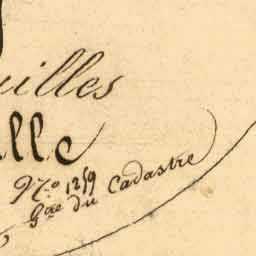 uilles
lle
N.o 1259
Gãe du Cadastre